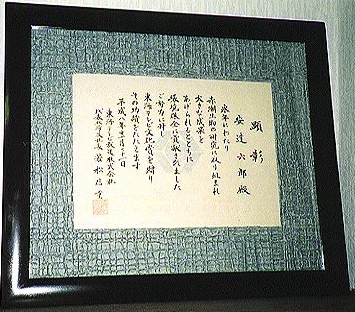 顕彰
安達六郎殿
永年にわたり
赤潮生物の研究に取り組まれ
大きな成果を
あげられるとともに
環境保全に貢献されました
ご努力に対し
東海テレビ文化賞を贈り
その功績をたたえます
平成八年二月十二日
東海テレビ放送株式会社
代表取締役社長